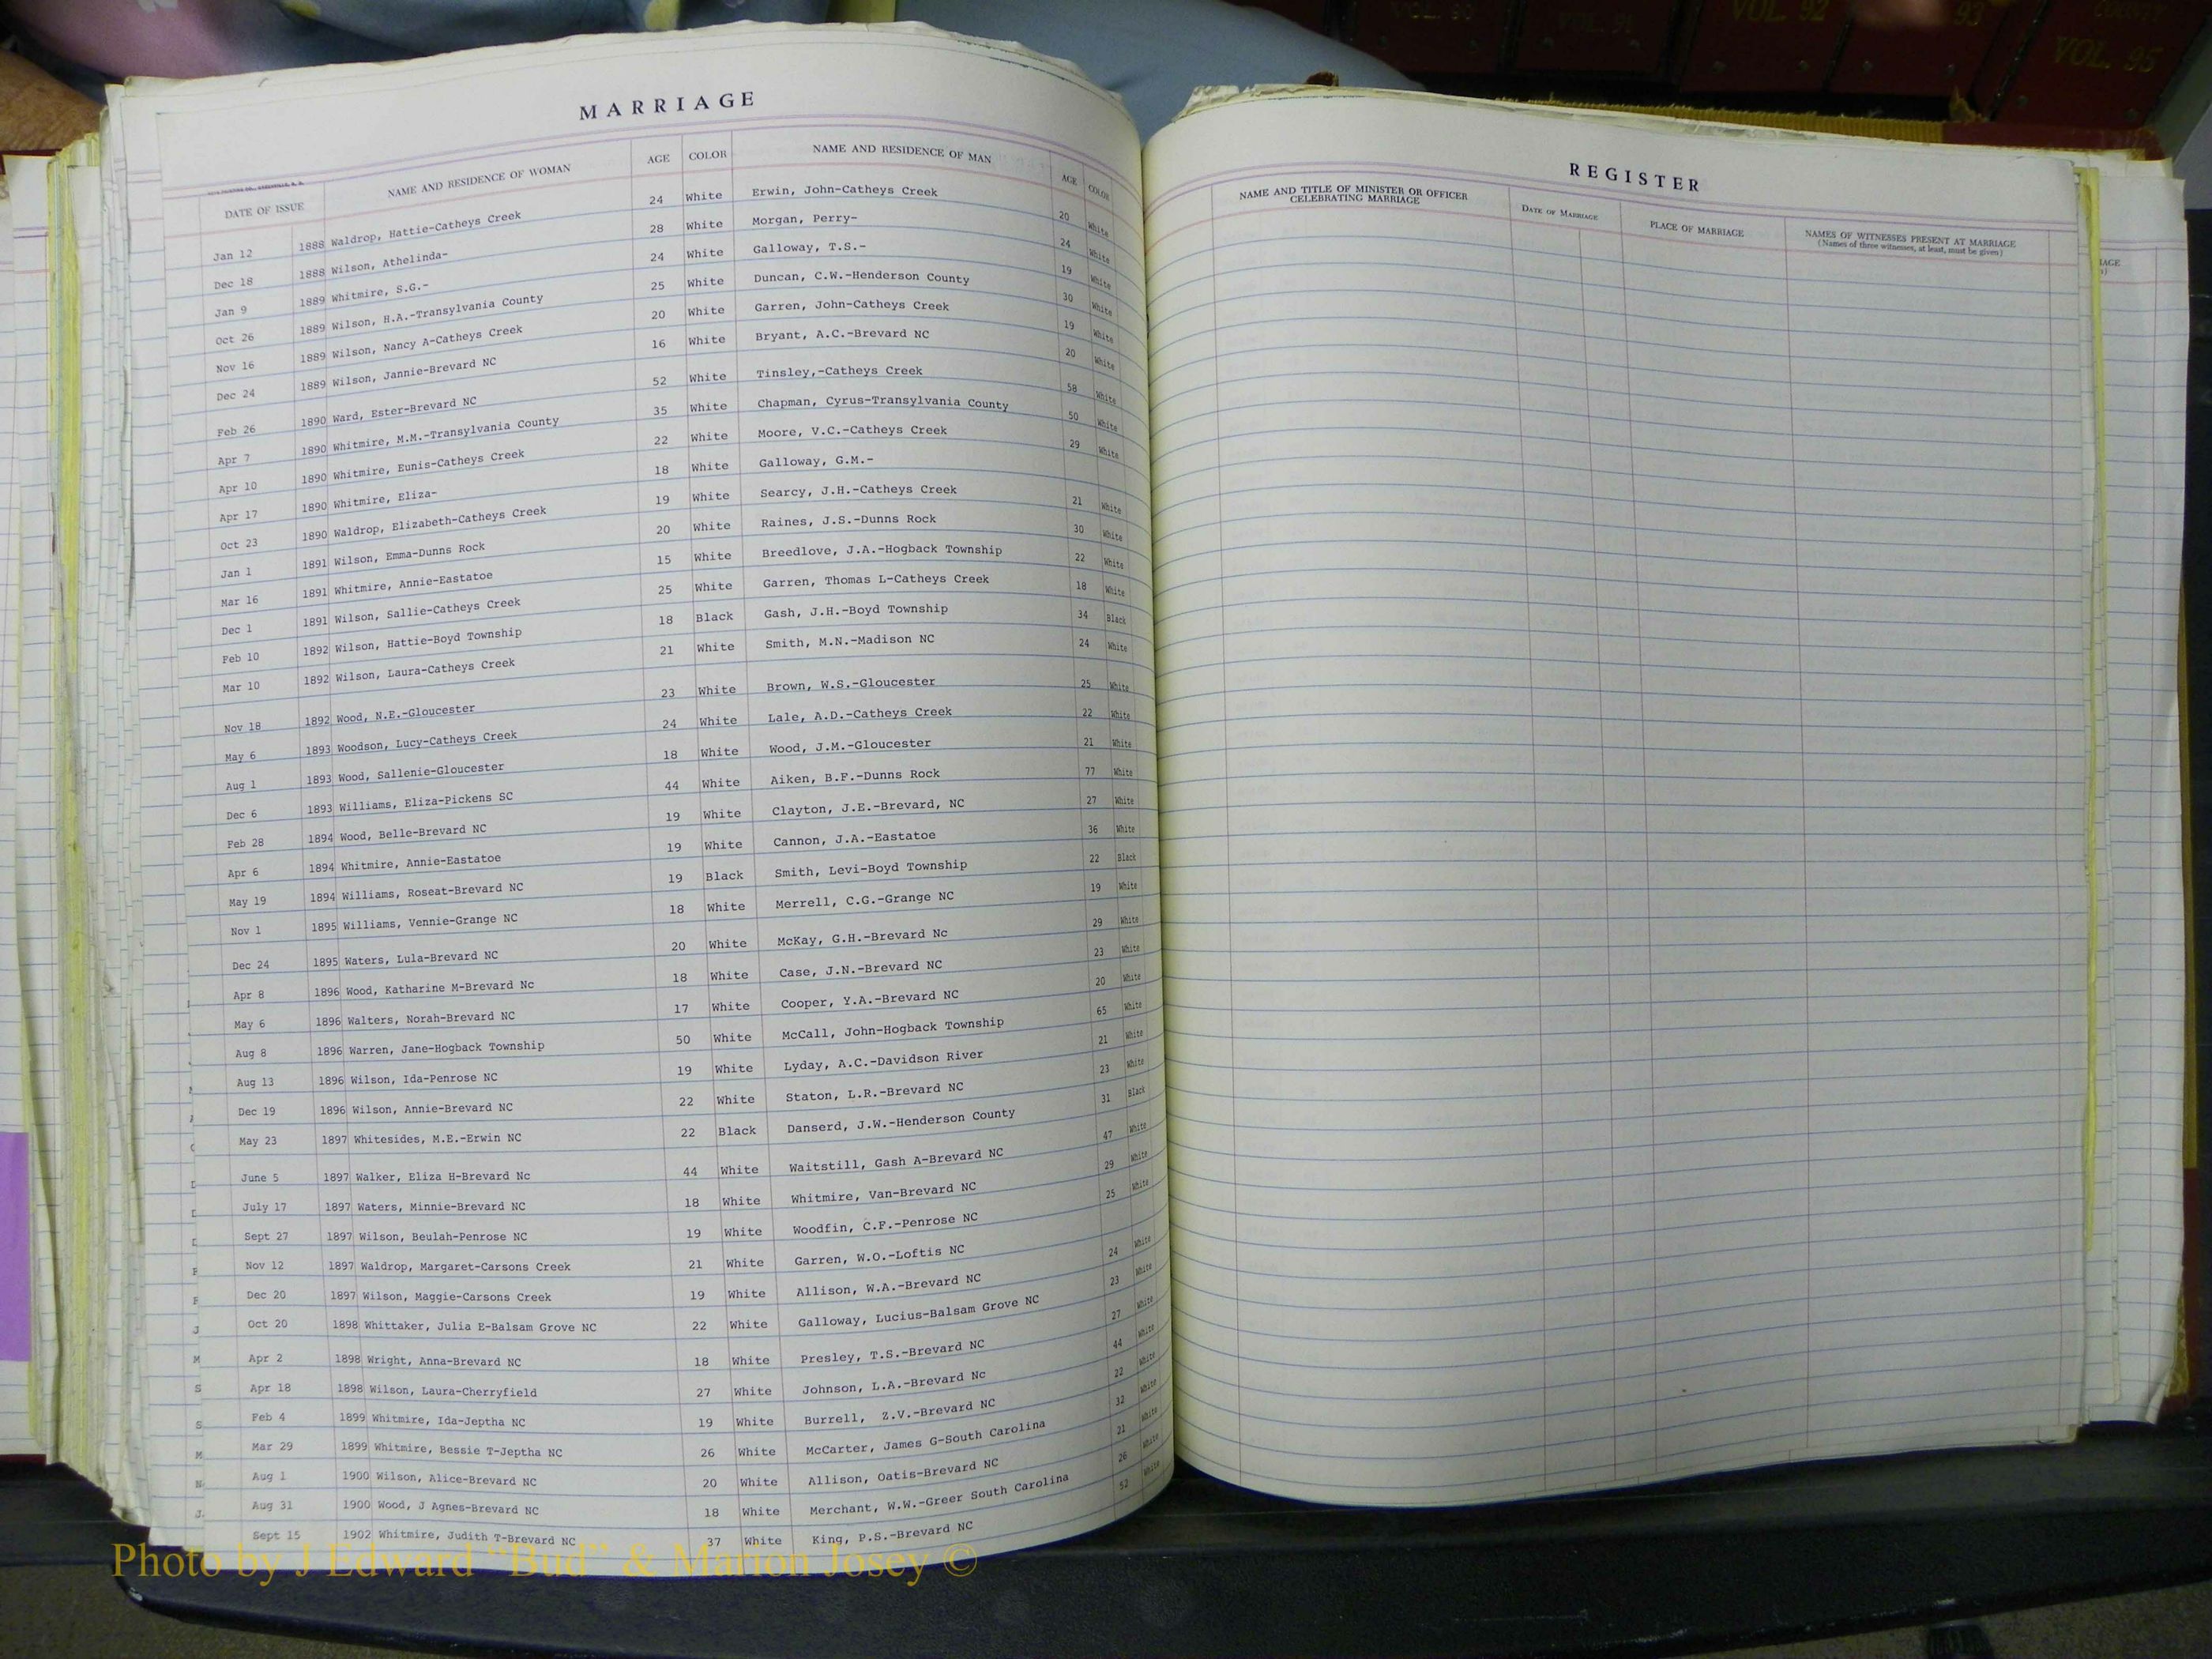 VOL. 92
93
COUNTY
VOL. 95
MARRIAGE
DATE OF ISSUE NAME AND RESIDENCE OF WOMAN AGE COLOR NAME AND RESIDENCE OF MAN AGE COLOR
Jan 12 1888 Waldrop, Hattie-Catheys Creek 24 White Erwin, John-Catheys Creek 20 White
Dec 18 1888 Wilson, Athelinda- 28 White Morgan, Perry- 24 White
Jan 9 1889 Whitmire, S.G.- 24 White Galloway, T.S.- 19 White
Oct 26 1889 Wilson, H.A.-Transylvania County 25 White Duncan, C.W.-Henderson County 30 White
Nov 16 1889 Wilson, Nancy A-Catheys Creek 20 White Garren, John-Catheys Creek 19 White
Dec 24 1889 Wilson, Jannie-Brevard NC 16 White Bryant, A.C.-Brevard NC 20 White
Feb 26 1890 Ward, Ester-Brevard NC 52 White Tinsley,-Catheys Creek 58 White
Apr 7 1890 Whitmire, M.M.-Transylvania County 35 White Chapman, Cyrus-Transylvania County 50 White
Apr 10 1890 Whitmire, Eunis-Catheys Creek 22 White Moore, V.C.-Catheys Creek 29 White
Apr 17 1890 Whitmire, Eliza- 18 White Galloway, G.M.-
Oct 23 1890 Waldrop, Elizabeth-Catheys Creek 19 White Searcy, J.H.-Catheys Creek 21 White
Jan 1 1891 Wilson, Emma-Dunns Rock 20 White Raines, J.S.-Dunns Rock 30 White
Mar 16 1891 Whitmire, Annie-Eastatoe 15 White Breedlove, J.A.-Hogback Township 22 White
Dec 1 1891 Wilson, Sallie-Catheys Creek 25 White Garren, Thomas L-Catheys Creek 18 White
Feb 10 1892 Wilson, Hattie-Boyd Township 18 Black Gash, J.H.-Boyd Township 34 Black
Mar 10 1892 Wilson, Laura-Catheys Creek 21 White Smith, M.N.-Madison NC 24 White
Nov 18 1892 Wood, N.E.-Gloucester 23 White Brown, W.S.-Gloucester 25 White
May 6 1893 Woodson, Lucy-Catheys Creek 24 White Lale, A.D.-Catheys Creek 22 White
Aug 1 1893 Wood, Sallenie-Gloucester 18 White Wood, J.M.-Gloucester 21 White
Dec 6 1893 Williams, Eliza-Pickens SC 44 White Aiken, B.F.-Dunns Rock 77 White
Feb 28 1894 Wood, Belle-Brevard NC 19 White Clayton, J.E.-Brevard, NC 27 White
Apr 6 1894 Whitmire, Annie-Eastatoe 19 White Cannon, J.A.-Eastatoe 36 White
May 19 1894 Williams, Roseat-Brevard NC 19 Black Smith, Levi-Boyd Township 22 Black
Nov 1 1895 Williams, Vennie-Grange NC 18 White Merrell, C.G.-Grange NC 19 White
Dec 24 1895 Waters, Lula-Brevard NC 20 White McKay, G.H.-Brevard Nc 29 White
Apr 8 1896 Wood, Katharine M-Brevard Nc 18 White Case, J.N.-Brevard NC 23 White
May 6 1896 Walters, Norah-Brevard NC 17 White Cooper, Y.A.-Brevard NC 20 White
Aug 8 1896 Warren, Jane-Hogback Township 50 White McCall, John-Hogback Township 65 White
Aug 13 1896 Wilson, Ida-Penrose NC 19 White Lyday, A.C.-Davidson River 21 White
Dec 19 1896 Wilson, Annie-Brevard NC 22 White Staton, L.R.-Brevard NC 23 White
May 23 1897 Whitesides, M.E.-Erwin NC 22 Black Danserd, J.W.-Henderson County 31 Black
June 5 1897 Walker, Eliza H-Brevard Nc 44 White Waitstill, Gash A-Brevard NC 47 White
July 17 1897 Waters, Minnie-Brevard NC 18 White Whitmire, Van-Brevard NC 29 White
Sept 27 1897 Wilson, Beulah-Penrose NC 19 White Woodfin, C.F.-Penrose NC 25 White
Nov 12 1897 Waldrop, Margaret-Carsons Creek 21 White Garren, W.O.-Loftis NC
Dec 20 1897 Wilson, Maggie-Carsons Creek 19 White Allison, W.A.-Brevard NC 24 White
Oct 20 1898 Whittaker, Julia E-Balsam Grove NC 22 White Galloway, Lucius-Balsam Grove NC 23 White
Apr 2 1898 Wright, Anna-Brevard NC 18 White Presley, T.S.-Brevard NC 27 White
Apr 18 1898 Wilson, Laura-Cherryfield 27 White Johnson, L.A.-Brevard Nc 44 White
Feb 4 1899 Whitmire, Ida-Jeptha NC 19 White Burrell, Z.V.-Brevard NC 22 White
Mar 29 1899 Whitmire, Bessie T-Jeptha NC 26 White McCarter, James G-South Carolina 32 White
Aug 1 1900 Wilson, Alice-Brevard NC 20 White Allison, Oatis-Brevard NC 21 White
Aug 31 1900 Wood, J Agnes-Brevard NC 18 White Merchant, W.W.-Greer South Carolina 26 White
Sept 15 1902 Whitmire, Judith T-Brevard NC 37 White King, P.S.-Brevard NC 52 White
REGISTER
NAME AND TITLE OF MINISTER OR OFFICER CELEBRATING MARRIAGE DATE OF MARRIAGE PLACE OF MARRIAGE NAMES OF WITNESSES PRESENT AT MARRIAGE
(Names of three witnesses, at least, must be given)
Photo by J Edward "Bud" & Marion Josey ©